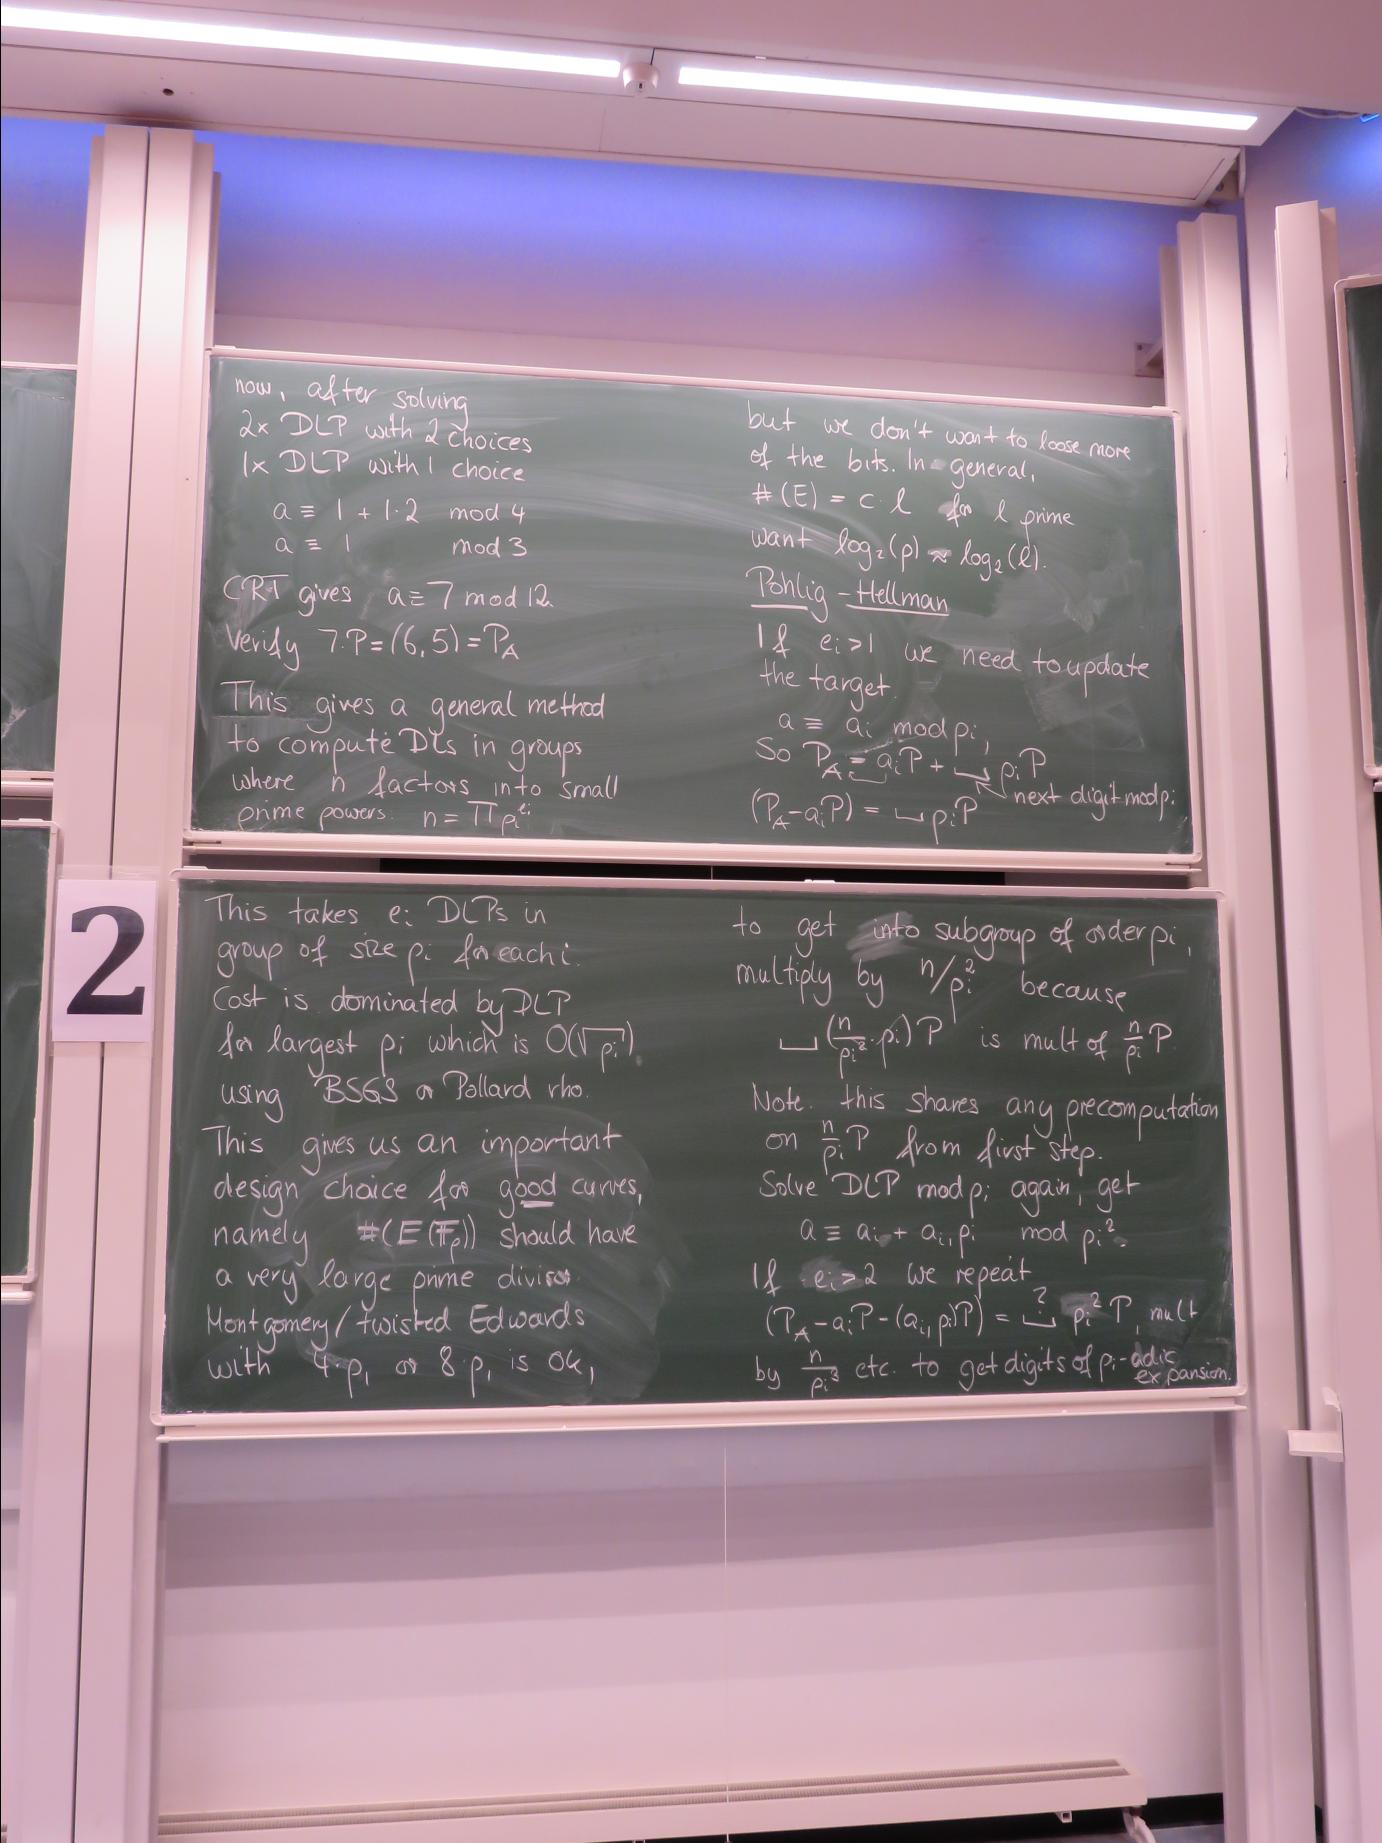 now, after solving
2x DLP with 2 choices
1x DLP with 1 choice
a ≡ 1 + 1·2 mod 4
a ≡ 1 mod 3
CRT gives a ≡ 7 mod 12
Verify 7·P = (6,5) = P_A
This gives a general method
to compute DLs in groups
where n factors into small
prime powers. n = ∏ p_i^{e_i}
This takes e_i DLPs in
group of size p_i for each i.
Cost is dominated by DLP
for largest p_i which is O(√p_i)
using BSGS or Pollard rho.
This gives us an important
design choice for good curves,
namely #(E(𝔽_p)) should have
a very large prime divisor.
Montgomery/twisted Edwards
with 4·p_1 or 8·p_1 is ok,
but we don't want to loose more
of the bits. In general,
#(E) = c·l for l prime
want log_2(p) ≈ log_2(l).
Pohlig-Hellman
If e_i > 1 we need to update
the target.
a ≡ a_i mod p_i,
So P_A = a_iP + ␣ p_iP
next digit mod p_i
(P_A - a_iP) = ␣ p_iP
to get into subgroup of order p_i,
multiply by n/p_i^2 because
␣ (n/p_i^2 · p_i) P is mult of n/p_i P
Note. this shares any precomputation
on n/p_i P from first step.
Solve DLP mod p_i again, get
a ≡ a_i + a_{i,1} p_i mod p_i^2.
If e_i > 2 we repeat
(P_A - a_iP - (a_{i,1} p_i)P) = ␣? p_i^2 P, mult
by n/p_i^3 etc. to get digits of p_i-adic
expansion.
2